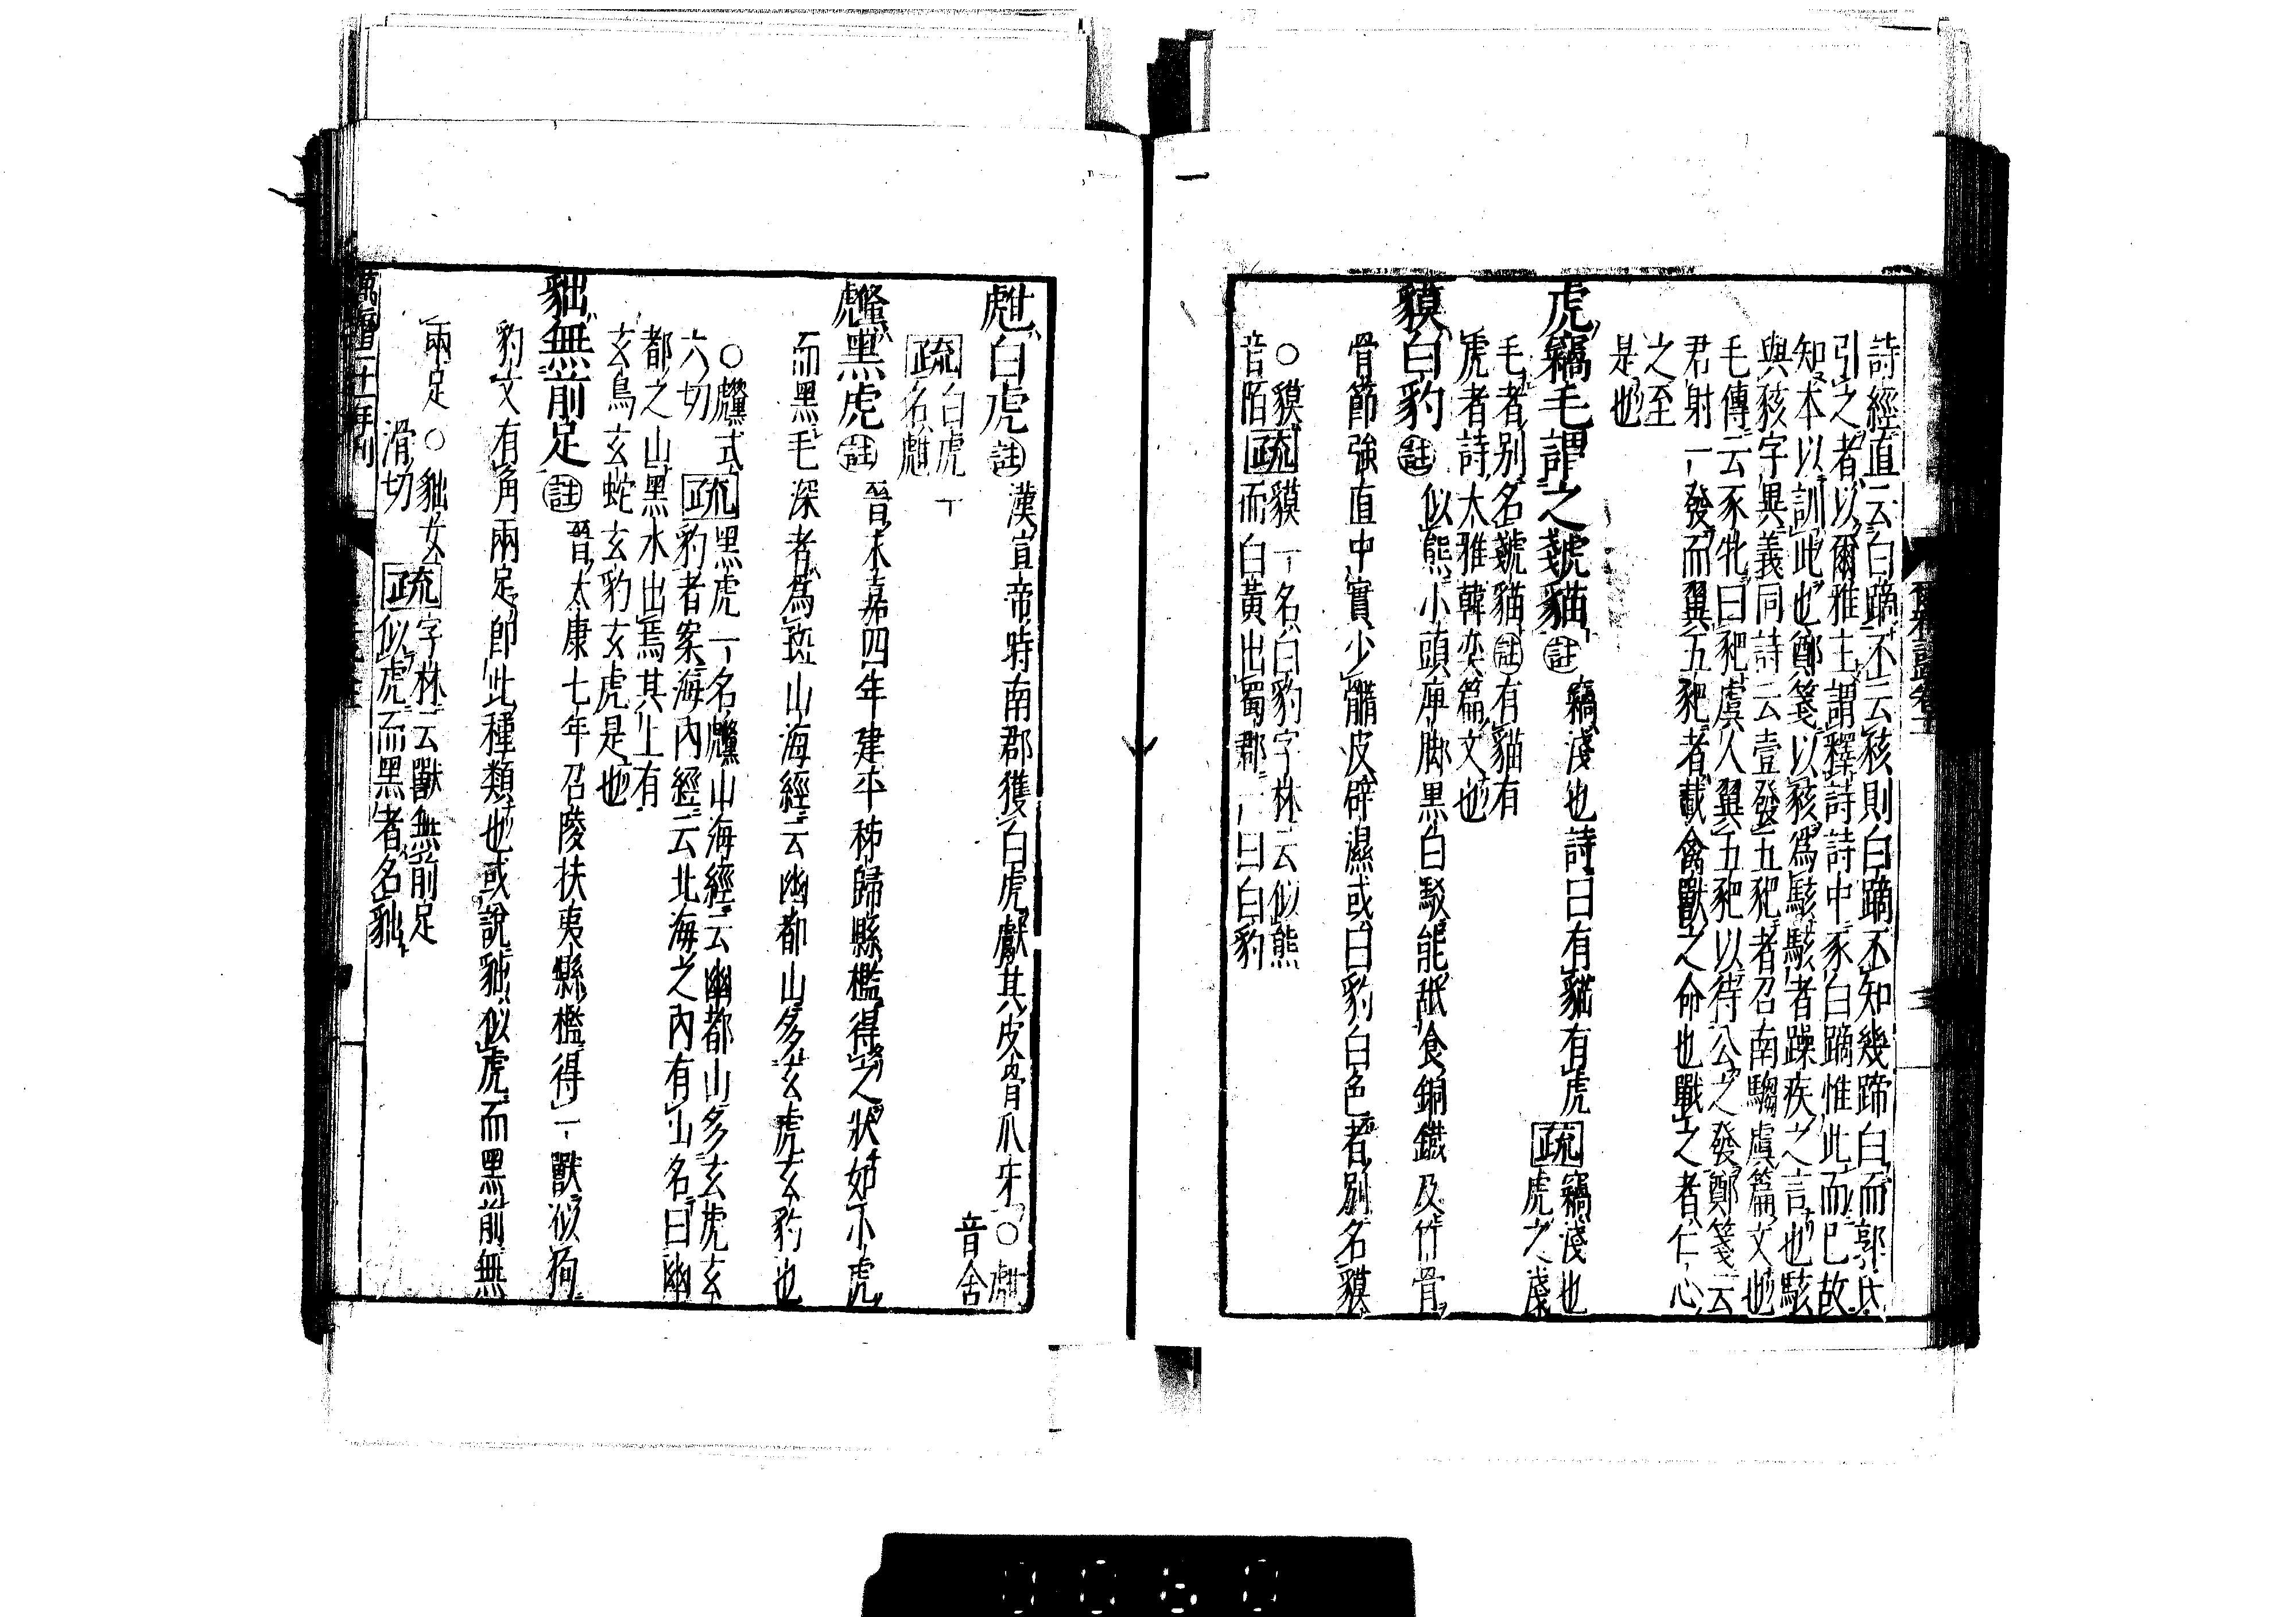 詩經直云白蹢不云豥則白蹢不知幾蹄白而郭氏
引之者以爾雅主謂釋詩詩中豕白蹢惟此而已故
知本以訓此也鄭箋以豥爲駭駭者躁疾之言也駭
與豥字異義同詩云壹發五豝者召南騶虞篇文也
毛傳云豕牝曰豝虞人翼五豝以待公之發鄭箋云
君射一發而翼五豝者戰禽獸之命也戰之者仁心
之至
是也
虎竊毛謂之虦貓註竊淺也詩曰有貓有虎疏竊淺也
虎之淺
毛者別名虦貓註有貓有
虎者詩大雅韓奕篇文也
貘白豹註似熊小頭庳脚黑白駁能舐食銅鐵及竹骨
骨節強直中實少髓皮辟濕或曰豹白色者別名貘
○貘音陌疏貘一名白豹字林云似熊
而白黃出蜀郡一曰白豹
甝白虎註漢宣帝時南郡獲白虎獻其皮骨爪牙○甝
音含
疏白虎一
名甝
虪黑虎註晉永嘉四年建平秭歸縣檻得之狀如小虎
而黑毛深者爲斑山海經云幽都山多玄虎玄豹也
○虪式
六切
疏黑虎一名虪山海經云幽都山多玄虎玄
豹者案海內經云北海之內有山名曰幽
都之山黑水出焉其上有
玄鳥玄蛇玄豹玄虎是也
貀無前足註晉太康七年召陵扶夷縣檻得一獸似狗
豹文有角兩足即此種類也或說貀似虎而黑前無
兩足○貀女
滑切
疏字林云獸無前足
似虎而黑者名貀